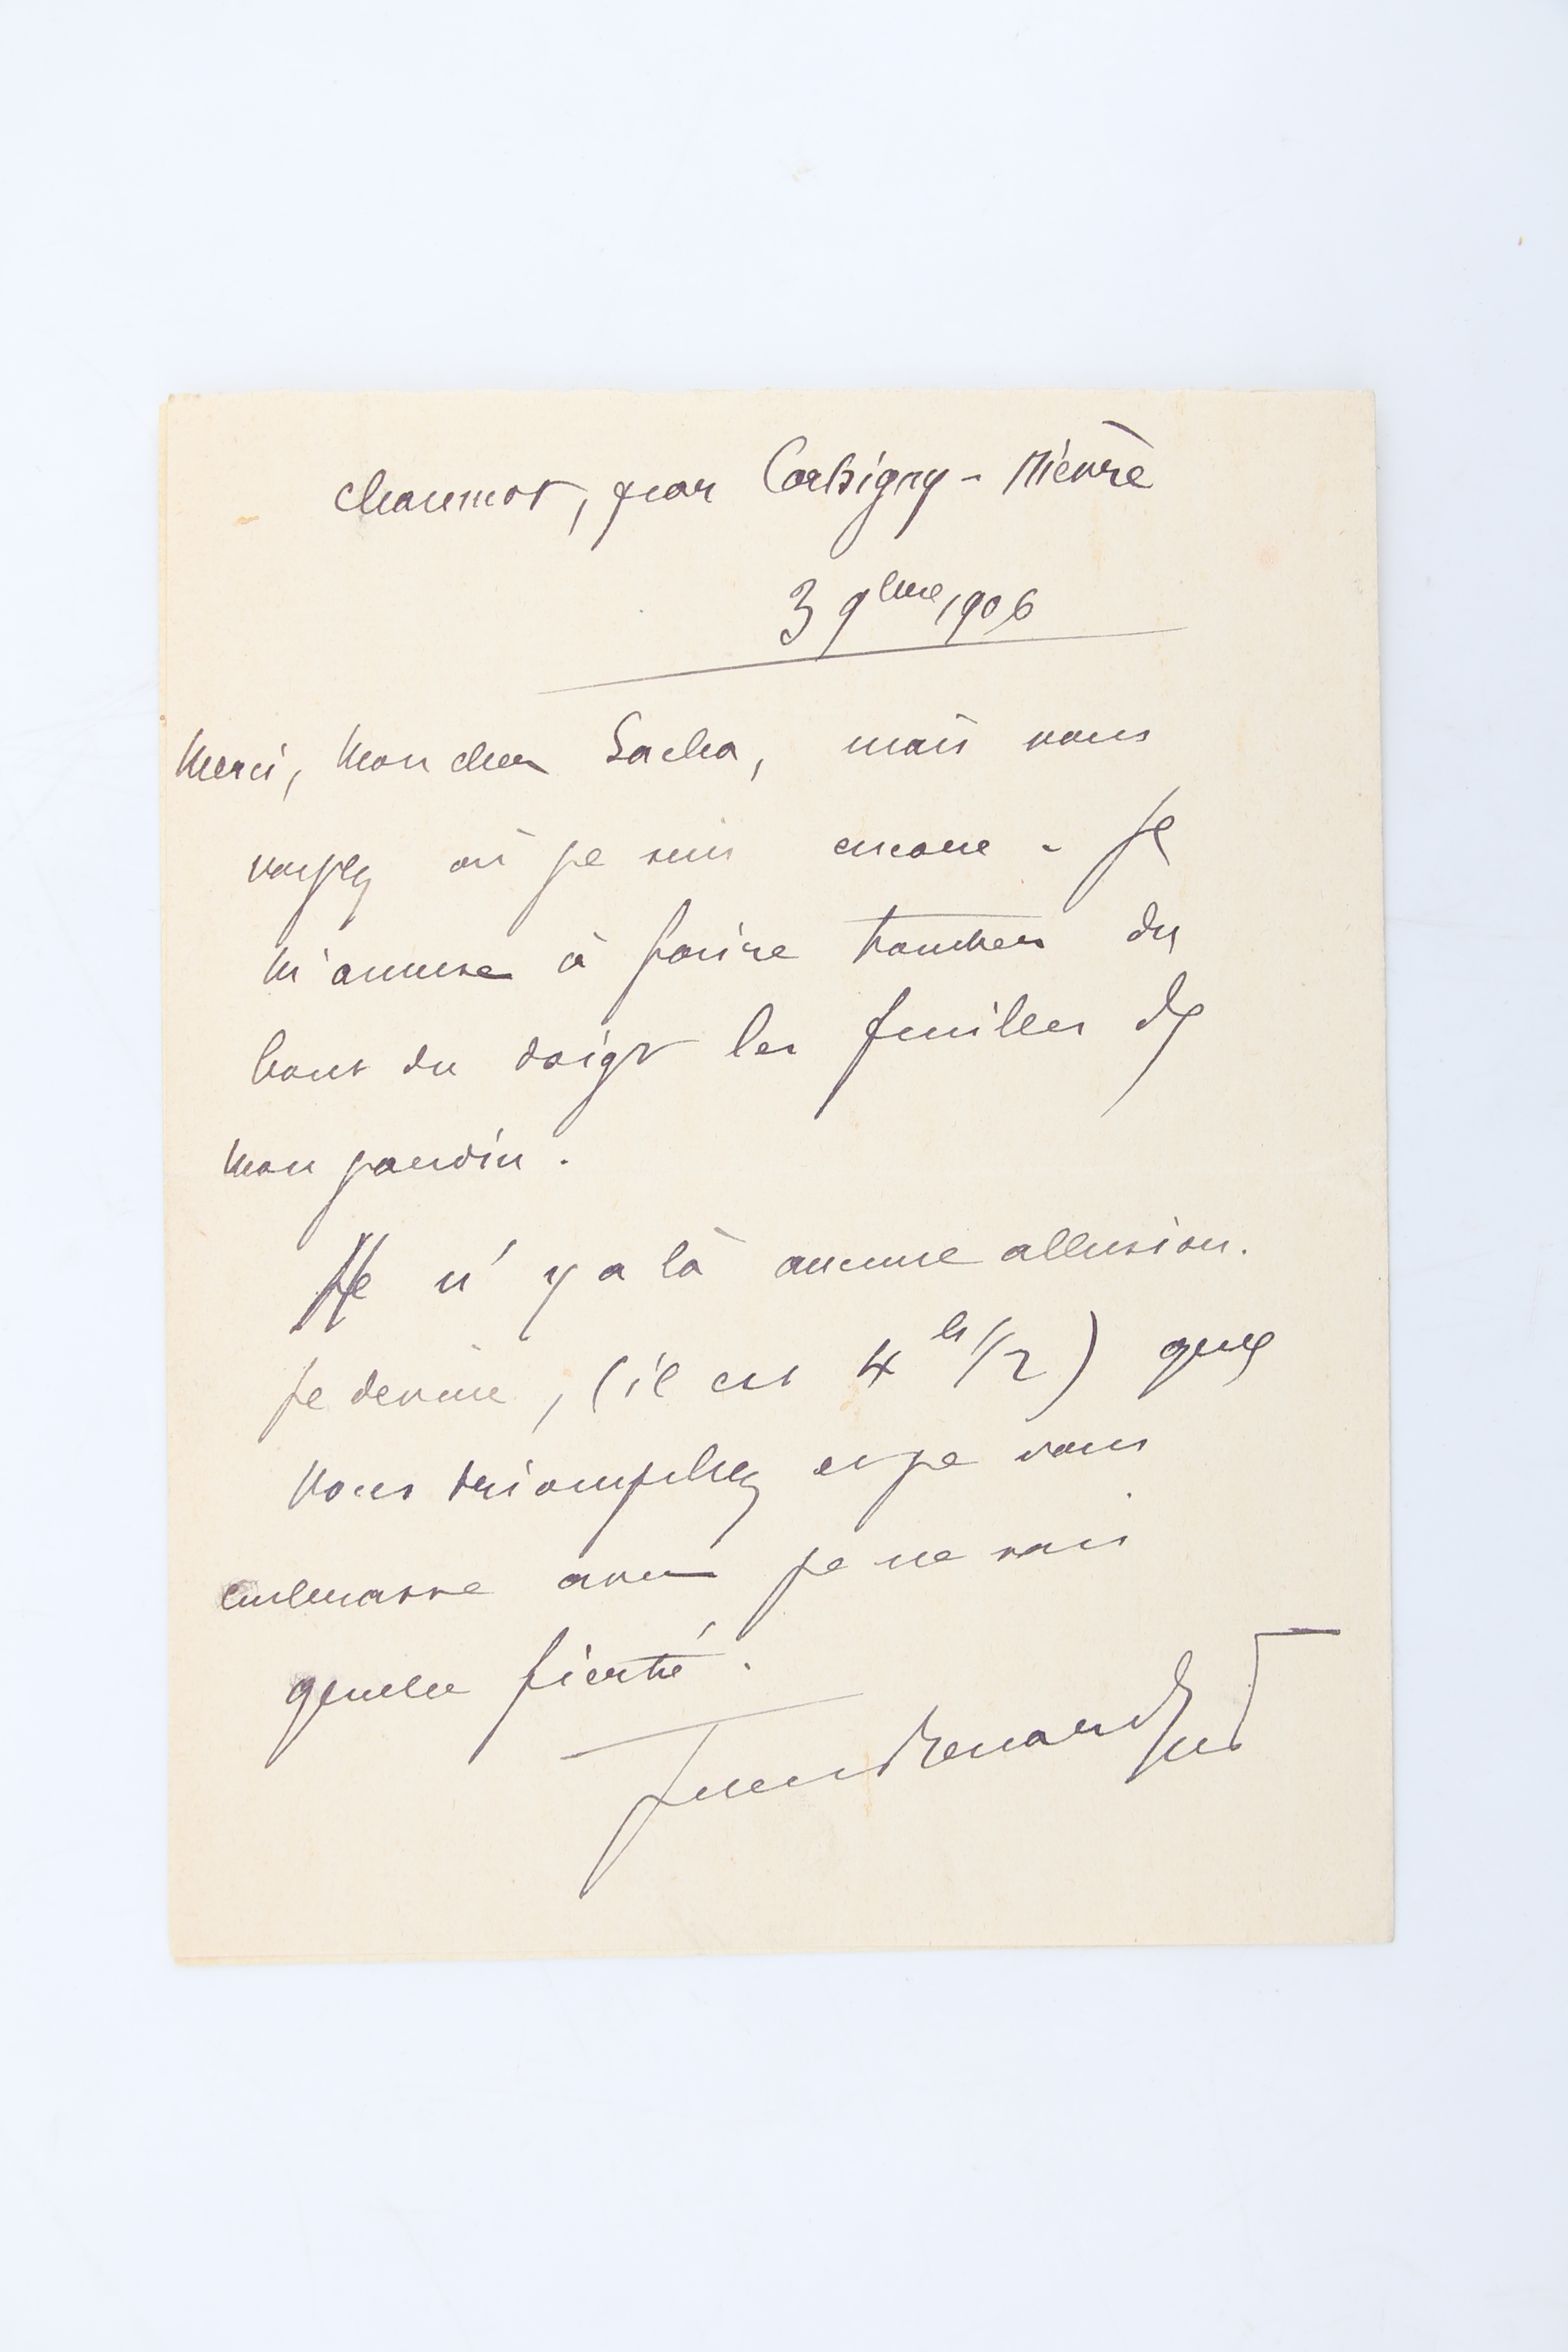 Chaumot, par Corbigny - Nièvre
3 9bre 1906
Merci, mon cher Sacha, mais vous
voyez où je suis encore - Je
m'amuse à faire tomber du
bout du doigt les feuilles de
mon jardin.
Il n'y a là aucune allusion.
Je devine, (il est 4 h 1/2) que
vous triomphez et je vous
embrasse avec je ne sais
quelle fierté.
Jules Renard